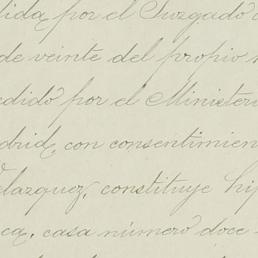 lida por el Juzgado
de veinte del propio
edido por el Ministeri
drid, con consentimien
elazquez, constituye hip
ca, casa número doce